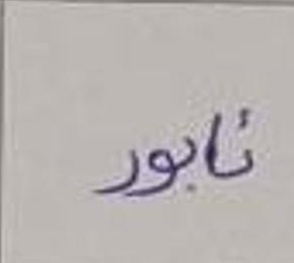 نابور